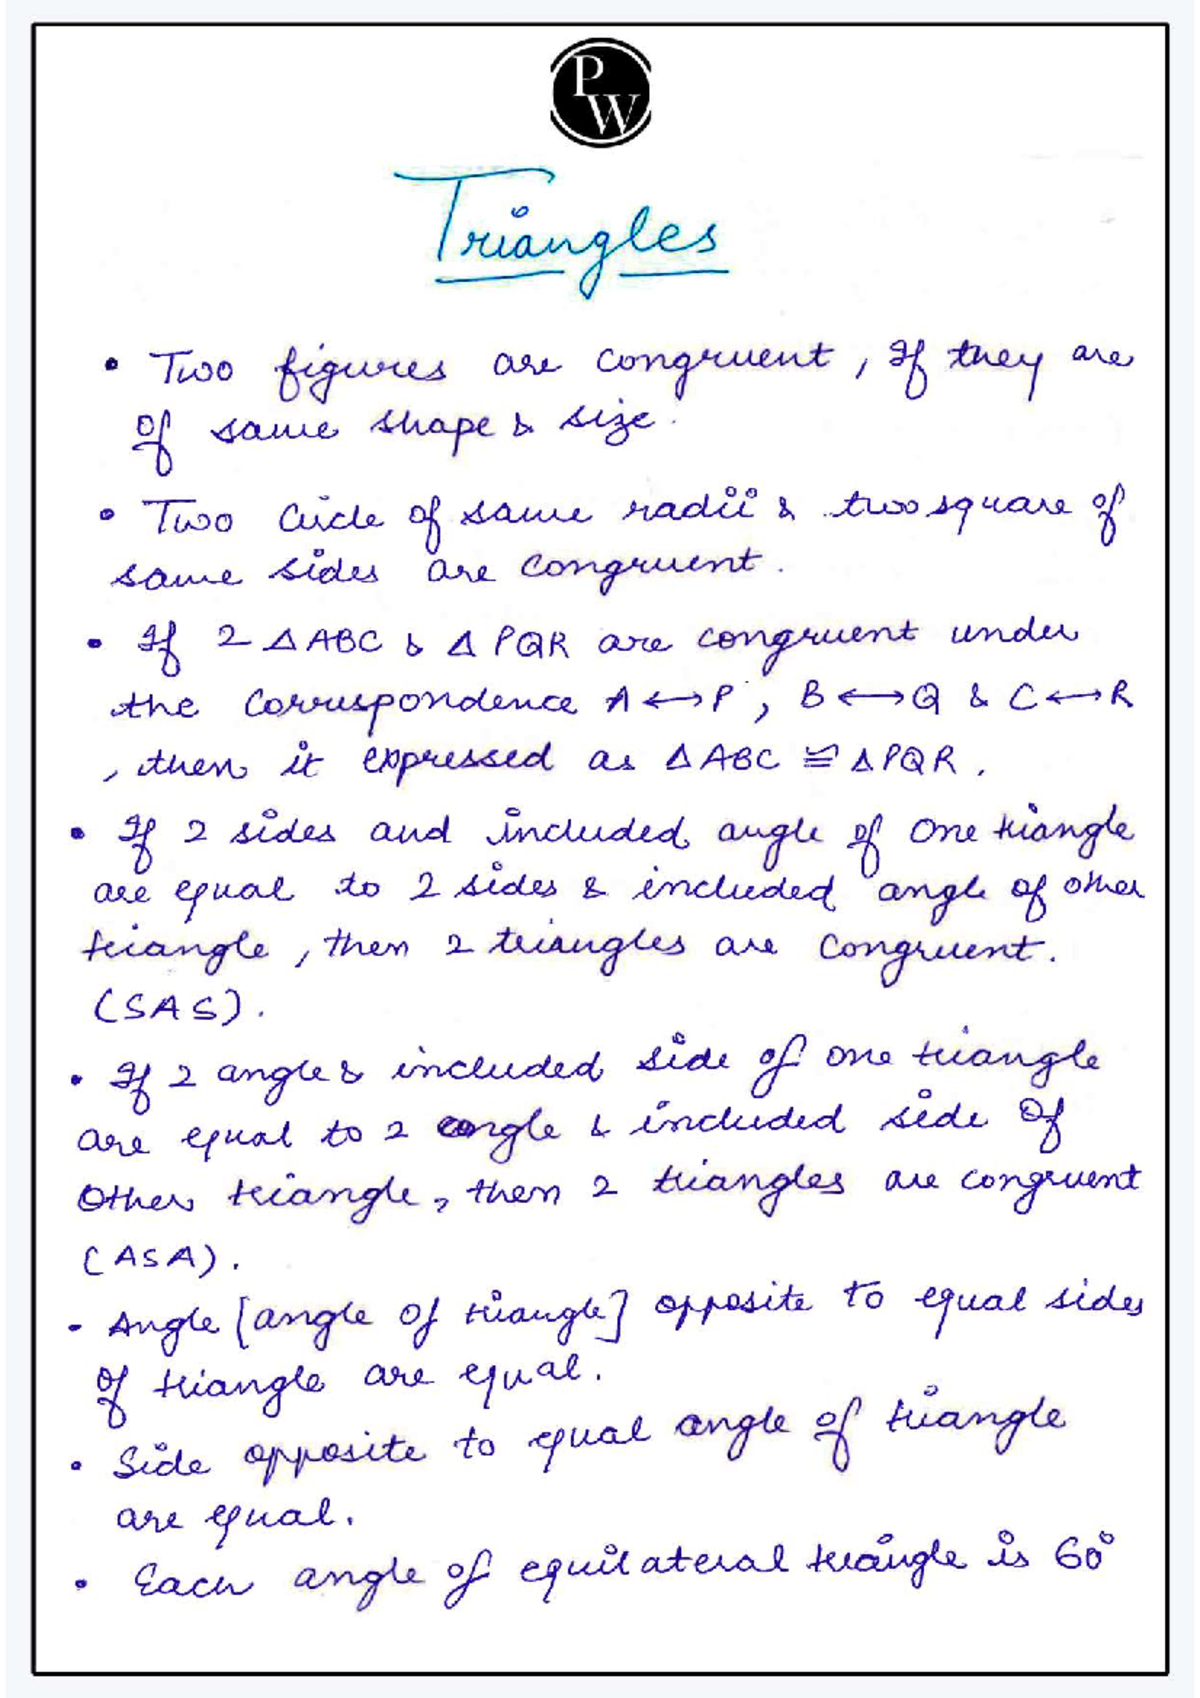 PW
Triangles
• Two figures are congruent, If they are
of same shape & size.
• Two Circle of same radii & two square of
same sides are congruent.
• If 2 △ABC & △PQR are congruent under
the Correspondence A⟷P, B⟷Q & C⟷R
, then it expressed as △ABC ≅ △PQR.
• If 2 sides and included angle of One triangle
are equal to 2 sides & included angle of other
triangle, then 2 triangles are Congruent.
(SAS).
• If 2 angle & included side of one triangle
are equal to 2 angle & included side Of
Other triangle, then 2 triangles are congruent
(ASA).
- Angle [angle of triangle] opposite to equal sides
of triangle are equal.
• Side opposite to equal angle of triangle
are equal.
• Each angle of equilateral triangle is 60°